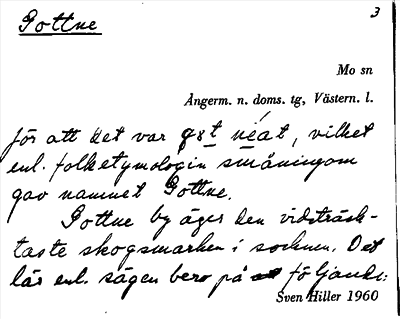 Gottne
3
Mo sn
Ångerm. n. doms. tg, Västern. l.
för att det var gst néat, vilket
enl. folketymologin småningom
gav namnet Gottne.
Gottne by äger den vidsträck-
taste skogsmarken i socknen. Det
lär enl. sägen bero på följande:
Sven Hiller 1960